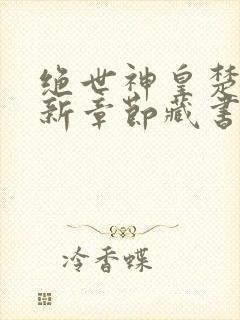 绝世神皇楚
新章節藏書
冷香蝶